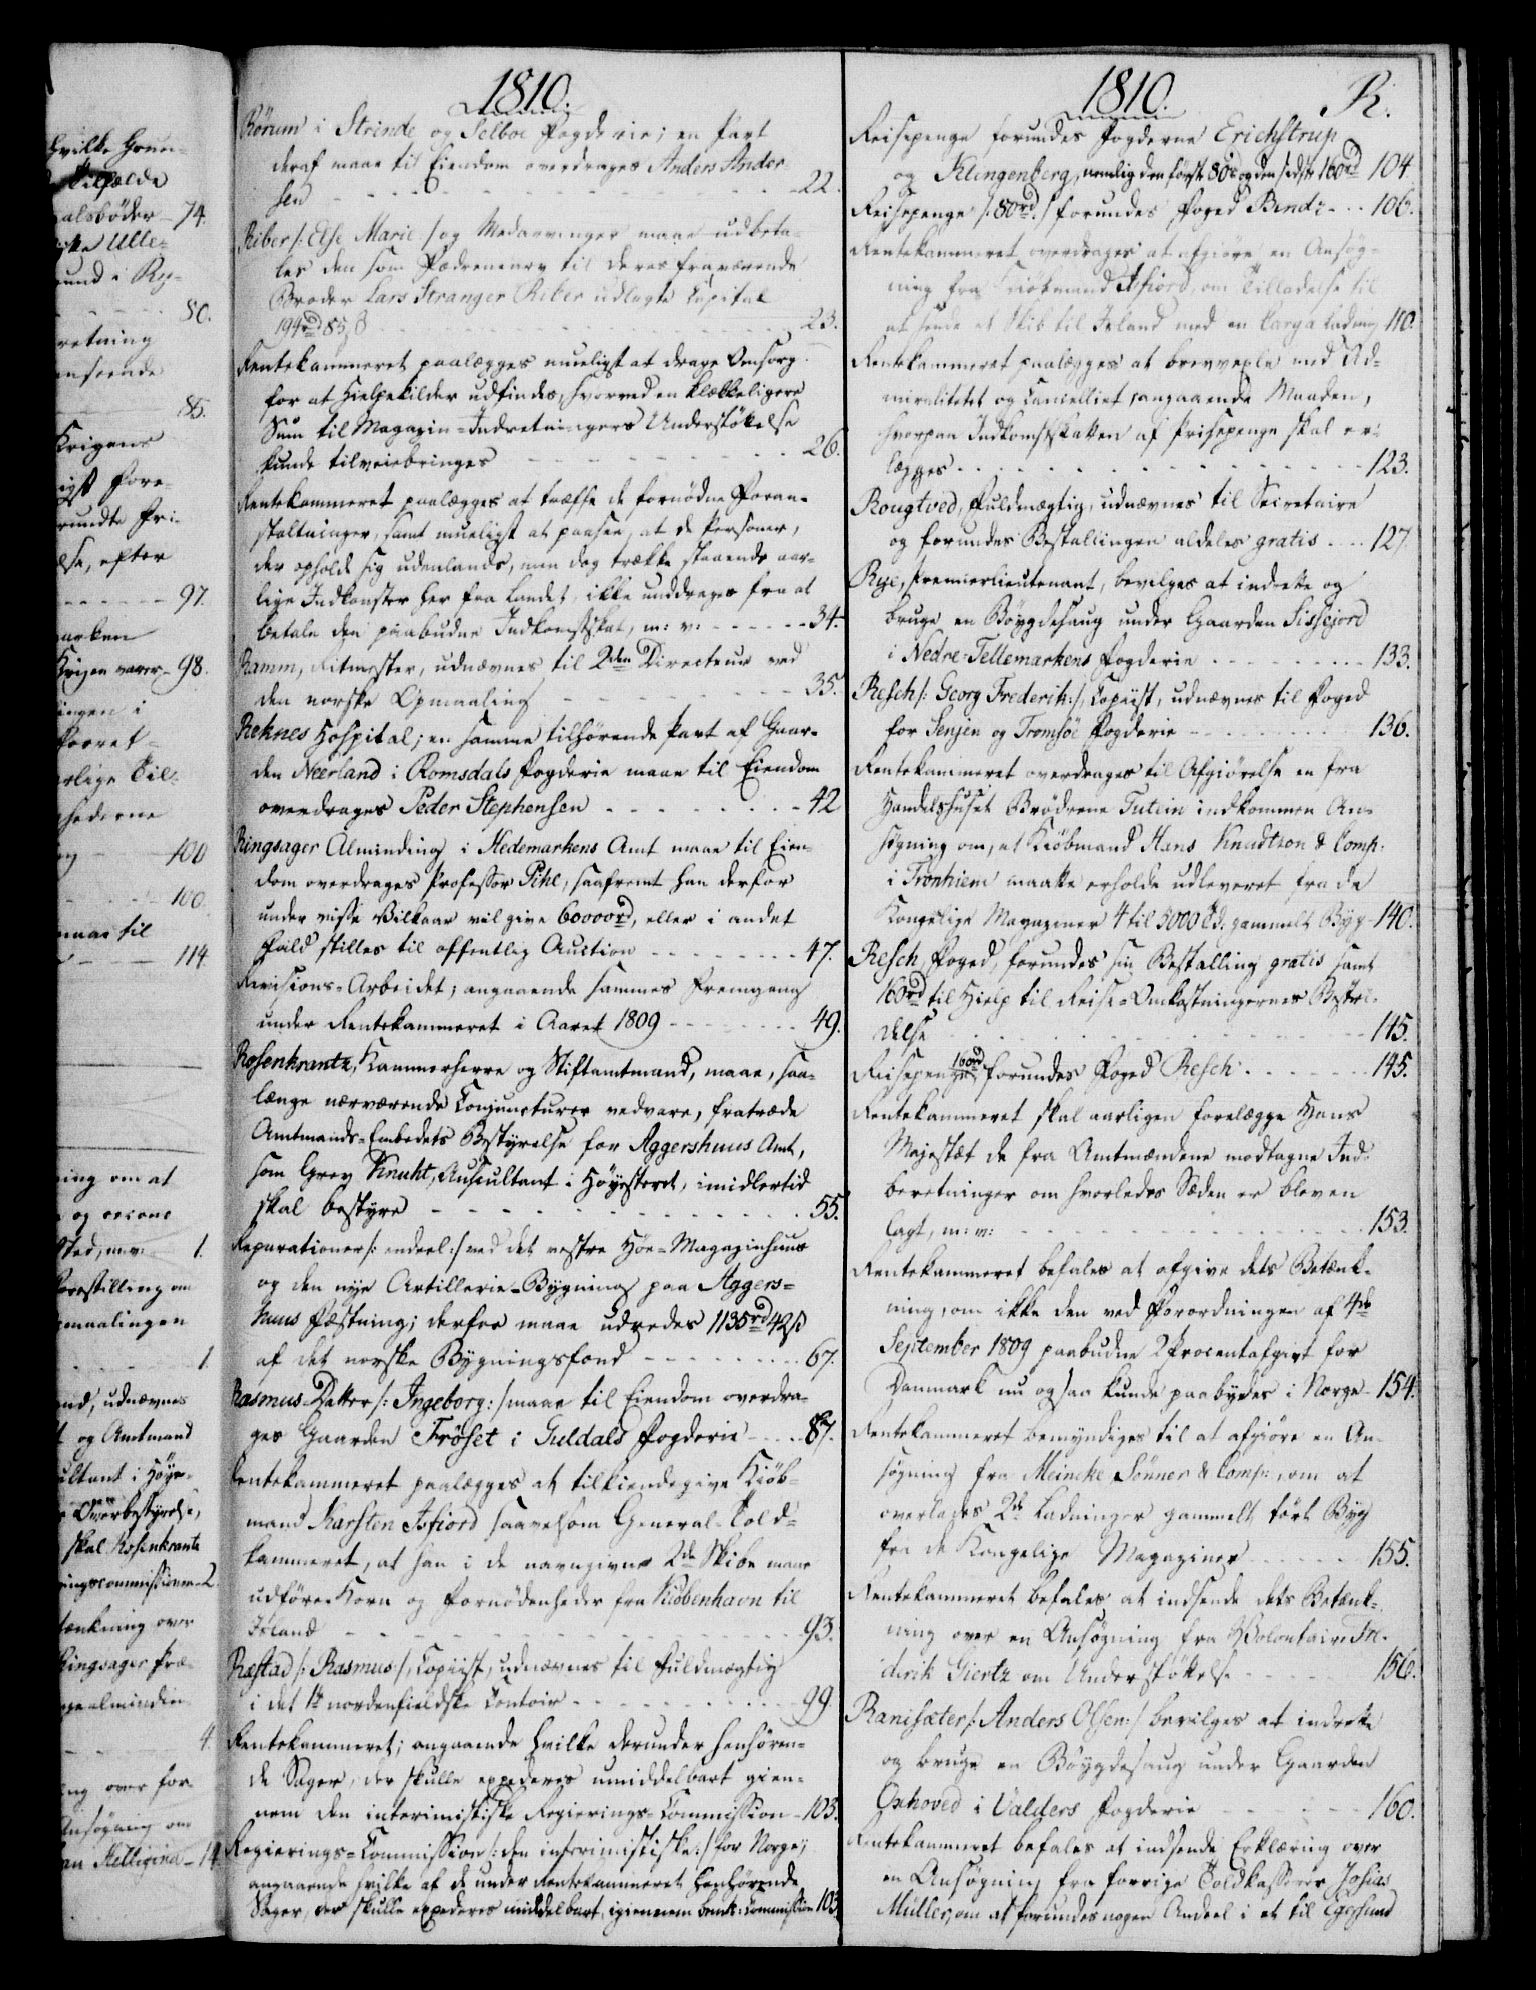 hvilke Grun-
Tilfælde
alsbøder - 74.
ske Ulle-
und i Ry-
50.
retning
enseende
85.
Krigens
igst fore-
rundte Pri-
else, efter
97.
arken
Krigen varer - 98.
ingen i
forret-
rlige Til-
hederne
100
100.
maae til
114.
ning om at
og ocione
sted, m:v: 1.
forestilling om
pmaalingen
1.
and, udnævnes
og Amtmand
ultant i Høye-
Overbestyrelse,
skal Rosenkrantz
ringscommissionen - 2
tænkning over
Ringsager Præ-
gealmindin-
4.
ng over for-
Ansøgning om
14
1810.
Rörum i Strinde og Selboe Fogderie; en Part
deraf maae til Eiendom overdrages Anders Ander-
sen - - - 22.
Riber /: Else Marie :/ og Medarvinger maae udbeta-
les den som Fædrenearv til deres fraværende
Broder Lars Stranger Riber udlagte Capital
194rd 85 ß - - - 23.
Rentekammeret paalægges mueligst at drage Omsorg
for at Hielpekilder udfindes, hvorved en klækkeligere
Sum til Magazin-Indretningers Understøttelse
kunde tilveiebringes - - - 26.
Rentekammeret paalægges at træffe de fornødne Foran-
staltninger, samt mueligst at paasee, at de Personer,
der opholde sig udenlands, men dog trække staaende aar-
lige Indkomster her fra Landet, ikke unddrages fra at
betale den paabudne Indkomstskat, m: v: - - - 34.
Ramm, Ritmester, udnævnes til 2den Directeur ved
den norske Opmaaling - - - 35.
Reknes Hospital; en samme tilhørende Part af Gaar-
den Neerland i Romsdals Fogderie maae til Eiendom
overdrages Peder Stephensen - - - 42
Ringsager Alminding i Hedemarkens Amt maae til Eien-
dom overdrages Professor Pihl, saafremt han derfor
under visse Vilkaar vil give 60000rd, eller i andet
Fald stilles til offentlig Auction - - - 47.
Revisions-Arbeidet; angaaende sammes Fremgang
under Rentekammeret i Aaret 1809 - - - 49.
Rosenkrantz, Kammerherre og Stiftamtmand, maae, saa-
længe nærværende Conjuncturer vedvare, fratræde
Amtmands-Embedets Bestyrelse for Aggershuus Amt,
som Grev Knuht, Auscultant i Høyesteret, imidlertid
skal bestyre - - - 55.
Reparationer /: endeel :/ ved det vestre Höe-Magazinhuus
og den nye Artillerie-Bygning paa Aggers-
huus Fæstning; derfor maae udredes 1135rd 42ß
af det norske Bygningsfond - - - 67.
Rasmus-Datter /: Ingeborg :/ maae til Eiendom overdra-
ges Gaarden Fröset i Guldals Fogderie - - - 87.
Rentekammeret paalægges at tilkiendegive Kiöb-
mand Karsten Isfiord saavelsom General-Told-
kammeret, at han i de navngivne 2de Skibe maae
udføre Korn og Fornødenheder fra Kiöbenhavn til
Island - - - 93.
Ræstad /: Rasmus :/, Copiist, udnævnes til Fuldmægtig
i det 1te nordenfieldske Contoir - - - 99
Rentekammeret; angaaende hvilke derunder henhören-
de Sager, der skulle expederes umiddelbart gien-
nem den interimistiske Regierings-Commission - 103.
Regierings-Commission /: den interimistiske :/ for Norge;
angaaende hvilke af de under Rentekammeret henhörende
Sager, der skulle expederes middelbart igiennem bemte: Commission 103.
1810. R.
Reisepenge forundes Fogderne Erichstrup
og Klingenberg, nemlig den første 80rd og den sidste 160rd 104
Reisepenge /: 80rd :/ forundes Foged Bendz - - - 106.
Rentekammeret overdrages at afgiöre en Ansøg-
ning fra Kiöbmand Isfiord, om Tilladelse til
at sende et Skib til Island med en Cargo Ladning 110.
Rentekammeret paalægges at brevvexle med Ad-
miralitetet og Cancelliet, angaaende Maaden,
hvorpaa Indkomstskatten af Prisepenge skal er-
lægges - - - 123.
Rougtved, Fuldmægtig, udnævnes til Secretaire
og forundes Bestallingen aldeles gratis - - - 127
Rye, Premierlieutenant, bevilges at indrette og
bruge en Böygdesaug under Gaarden Sissejord
i Nedre-Tellemarkens Fogderie - - - 133.
Resch /: Georg Frederik :/, Copiist, udnævnes til Foged
for Senjen og Tromsöe Fogderie - - - 136.
Rentekammeret overdrages til Afgiörelse en fra
Handelshuset Brödrene Tutein indkommen An-
søgning om, at Kiöbmand Hans Knudtzon & Comp:
i Tronhiem maatte erholde udleveret fra de
Kongelige Magaziner 4 til 5000 Td. gammelt Byg - 140.
Resch, Foged, forundes sin Bestalling gratis samt
160rd til Hielp til Reise-Omkostningernes Bestri-
delse - - - 145.
Reisepenge 160rd forundes Foged Resch - - - 145.
Rentekammeret skal aarligen forelægge Hans
Majestæt de fra Amtmændene modtagne Ind-
beretninger om hvorledes Sæden er bleven
lagt, m: v: - - - 153.
Rentekammeret befales at afgive dets Betænk-
ning, om ikke den ved Forordningen af 4de
September 1809 paabudne 2 Procentafgivt for
Danmark nu ogsaa kunde paabydes i Norge - 154.
Rentekammeret bemyndiges til at afgiöre en An-
søgning fra Meincke Sönner & Comp:, om at
overlades 2de Ladninger gammelt tört Byg
fra de Kongelige Magaziner - - - 155.
Rentekammeret befales at indsende dets Betænk-
ning over en Ansøgning fra Volontair Fre-
derik Giertz om Understöttelse - - - 156.
Ranisæter /: Anders Olsen :/ bevilges at indrette
og bruge en Böygdesaug under Gaarden
Oxhoved i Valders Fogderie - - - 160.
Rentekammeret befales at indsende Erklæring over
en Ansøgning fra forrige Toldkasserer Josias
Müller, om at forundes nogen Andeel i et til Egersund